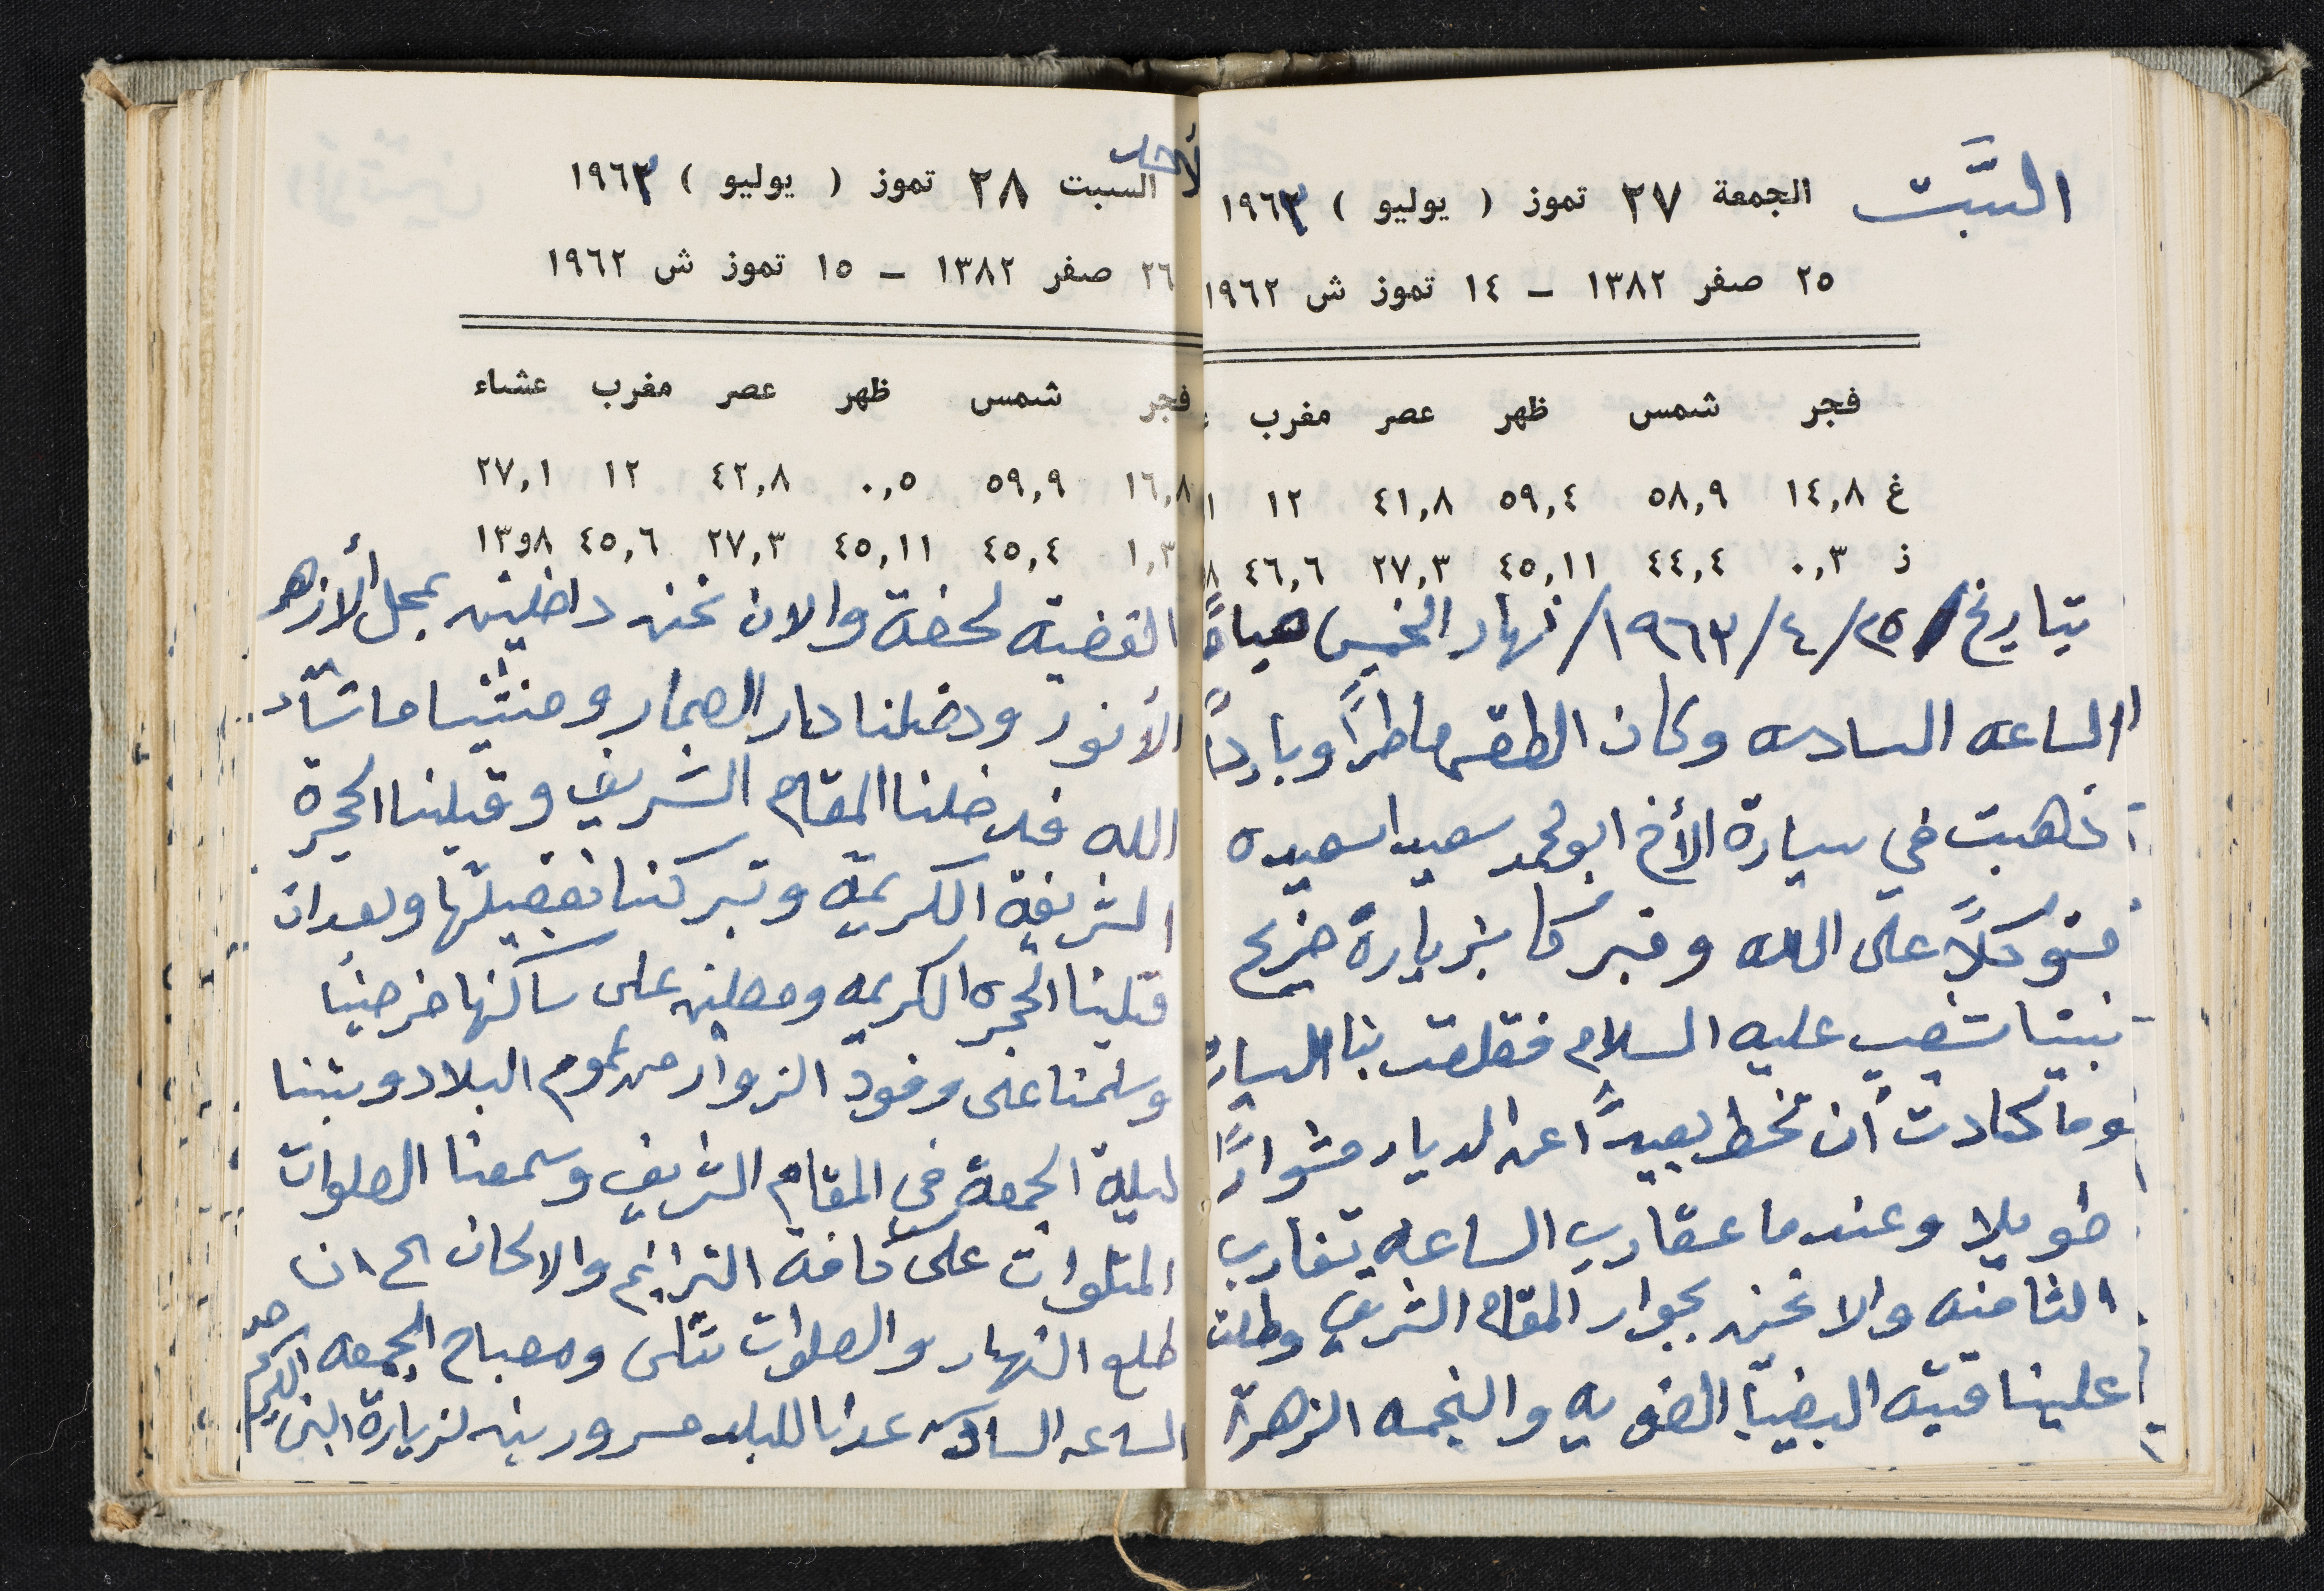 السَّبت
الجمعة ٢٧ تموز ( يوليو ) ١٩٦٣
٢٥ صفر ١٣٨٢ – ١٤ تموز ش ١٩٦٢
فجر شمس ظهر عصر مغرب
غ ١٤,٨ ٥٨,٩ ٥٩,٤ ٤١,٨ ١٢
ز ٠,٣ ٤٤,٤ ٤٥,١١ ٢٧,٣ ٤٦,٦
بتاريخ ٢٥/٤/١٩٦٣/ نهار الخميس صباحًا
الساعه السادسه وكان الطقس ماطرًا وباردًا
ذهبت في سيارة الأخ ابو محمد سعيد اسعيده
متوكلًا على الله وتبركا بزيارة ضريح
نبينا شعيب عليه السلام فقلعت بنا السيارة
وما كادت أن تخط بعيدًا عن الديار مشوارًا
طويلا وعندما عقارب الساعه تقارب
الثامنه والا نحن بجوار المقام الشريف وطلت
علينا قبته البيضا الضويه والنجمه الزهرا
لأحد
السبت ٢٨ تموز ( يوليو ) ١٩٦٣
٢٦ صفر ١٣٨٢ – ١٥ تموز ش ١٩٦٢
فجر شمس ظهر عصر مغرب عشاء
١٦,٨ ٥٩,٩ ٠,٥ ٤٢,٨ ١٢ ٢٧,١
١,٣ ٤٥,٤ ٤٥,١١ ٢٧,٣ ٤٥,٦ ٨و١٣
القضيه لحضة والان نحن داخلين بمحل الأزهر
الأنور ودخلنا دار العمار ومشينا ماشآء
الله فدخلنا المقام الشريف وقبلنا الحجرة
الشريفة الكريمة وتبركنا بفضيلتها وبعد ان
قبلينا الحجره الكريمه ومصلين على ساكنها خرجنا
وسلمنا على وفود الزوار من عموم البلاد وبتنا
ليلة الجمعة في المقام الشريف وسمعنا الصلوات
المتلوات على كافة الترانيم والالحان الى ان
طلع النهار والصلوات تتلى ومصباح الجمعه
الساعه السادسه عدنا للبلد مسرورين لزيارة النبي الكريم